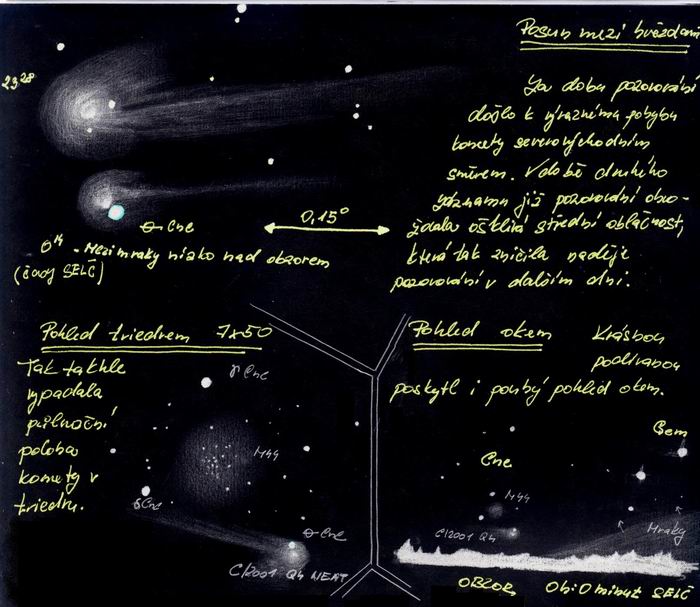 Posun mezi hvězdami
23²⁸
Za dobu pozorování
došlo k výraznému pohybu
komety severovýchodním
směrem. V době druhého
záznamu již pozorování
ošklivá střední oblačnost,
která tak zničila naděje
pozorování v dalším dni.
ϴ Cnc
0,15°
0ᴴ - Mezi mraky nízko nad obzorem
(časy SELČ)
Pohled triedrem 7x50
Tak takhle
vypadala
půlnoční
poloha
komety v
triedru.
γ Cnc
M44
δ Cnc
ϴ Cnc
C/2001 Q4 NEAT
Pohled okem
Krásnou
podívanou
poskytl i pouhý pohled okem.
Gem
Cnc
M44
C/2001 Q4
Mraky
OBZOR
0h:0 minut SELČ